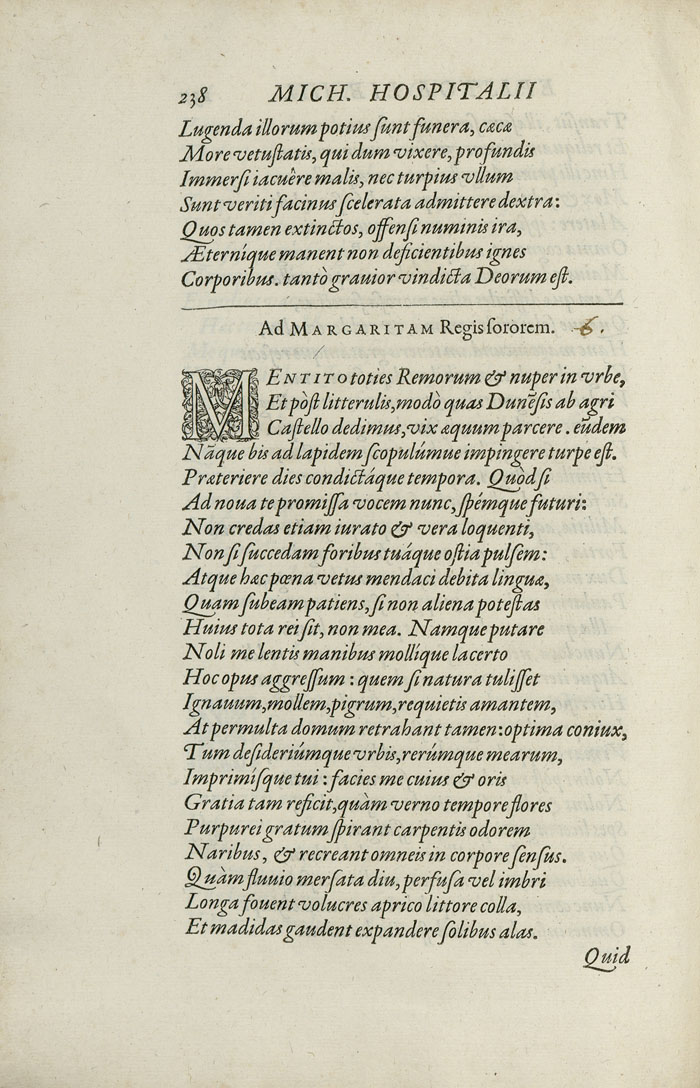 238 MICH. HOSPITALII
Lugenda illorum potius ſunt funera, cæcæ
More vetuſtatis, qui dum vixere, profundis
Immerſi iacuêre malis, nec turpius vllum
Sunt veriti facinus ſcelerata admittere dextra:
Quos tamen extinctos, offenſi numinis ira,
Æterníque manent non deficientibus ignes
Corporibus. tantò grauior vindicta Deorum eſt.
Ad MARGARITAM Regis ſororem. 6.
MENTITO toties Remorum & nuper in vrbe,
Et pòſt litterulis, modò quas Dunēſis ab agri
Caſtello dedimus, vix æquum parcere. eūdem
Nāque bis ad lapidem ſcopulúmue impingere turpe eſt.
Præteriere dies condictáque tempora. Quòd ſi
Ad noua te promiſſa vocem nunc, ſpémque futuri:
Non credas etiam iurato & vera loquenti,
Non ſi ſuccedam foribus tuáque oſtia pulſem:
Atque hæc pœna vetus mendaci debita linguæ,
Quam ſubeam patiens, ſi non aliena poteſtas
Huius tota rei ſit, non mea. Namque putare
Noli me lentis manibus mollíque lacerto
Hoc opus aggreſſum : quem ſi natura tuliſſet
Ignauum, mollem, pigrum, requietis amantem,
At permulta domum retrahant tamen: optima coniux,
Tum deſideriúmque vrbis, rerúmque mearum,
Imprimíſque tui : facies me cuius & oris
Gratia tam reficit, quàm verno tempore flores
Purpurei gratum ſpirant carpentis odorem
Naribus, & recreant omneis in corpore ſenſus.
Quàm fluuio merſata diu, perfuſa vel imbri
Longa fouent volucres aprico littore colla,
Et madidas gaudent expandere ſolibus alas.
Quid